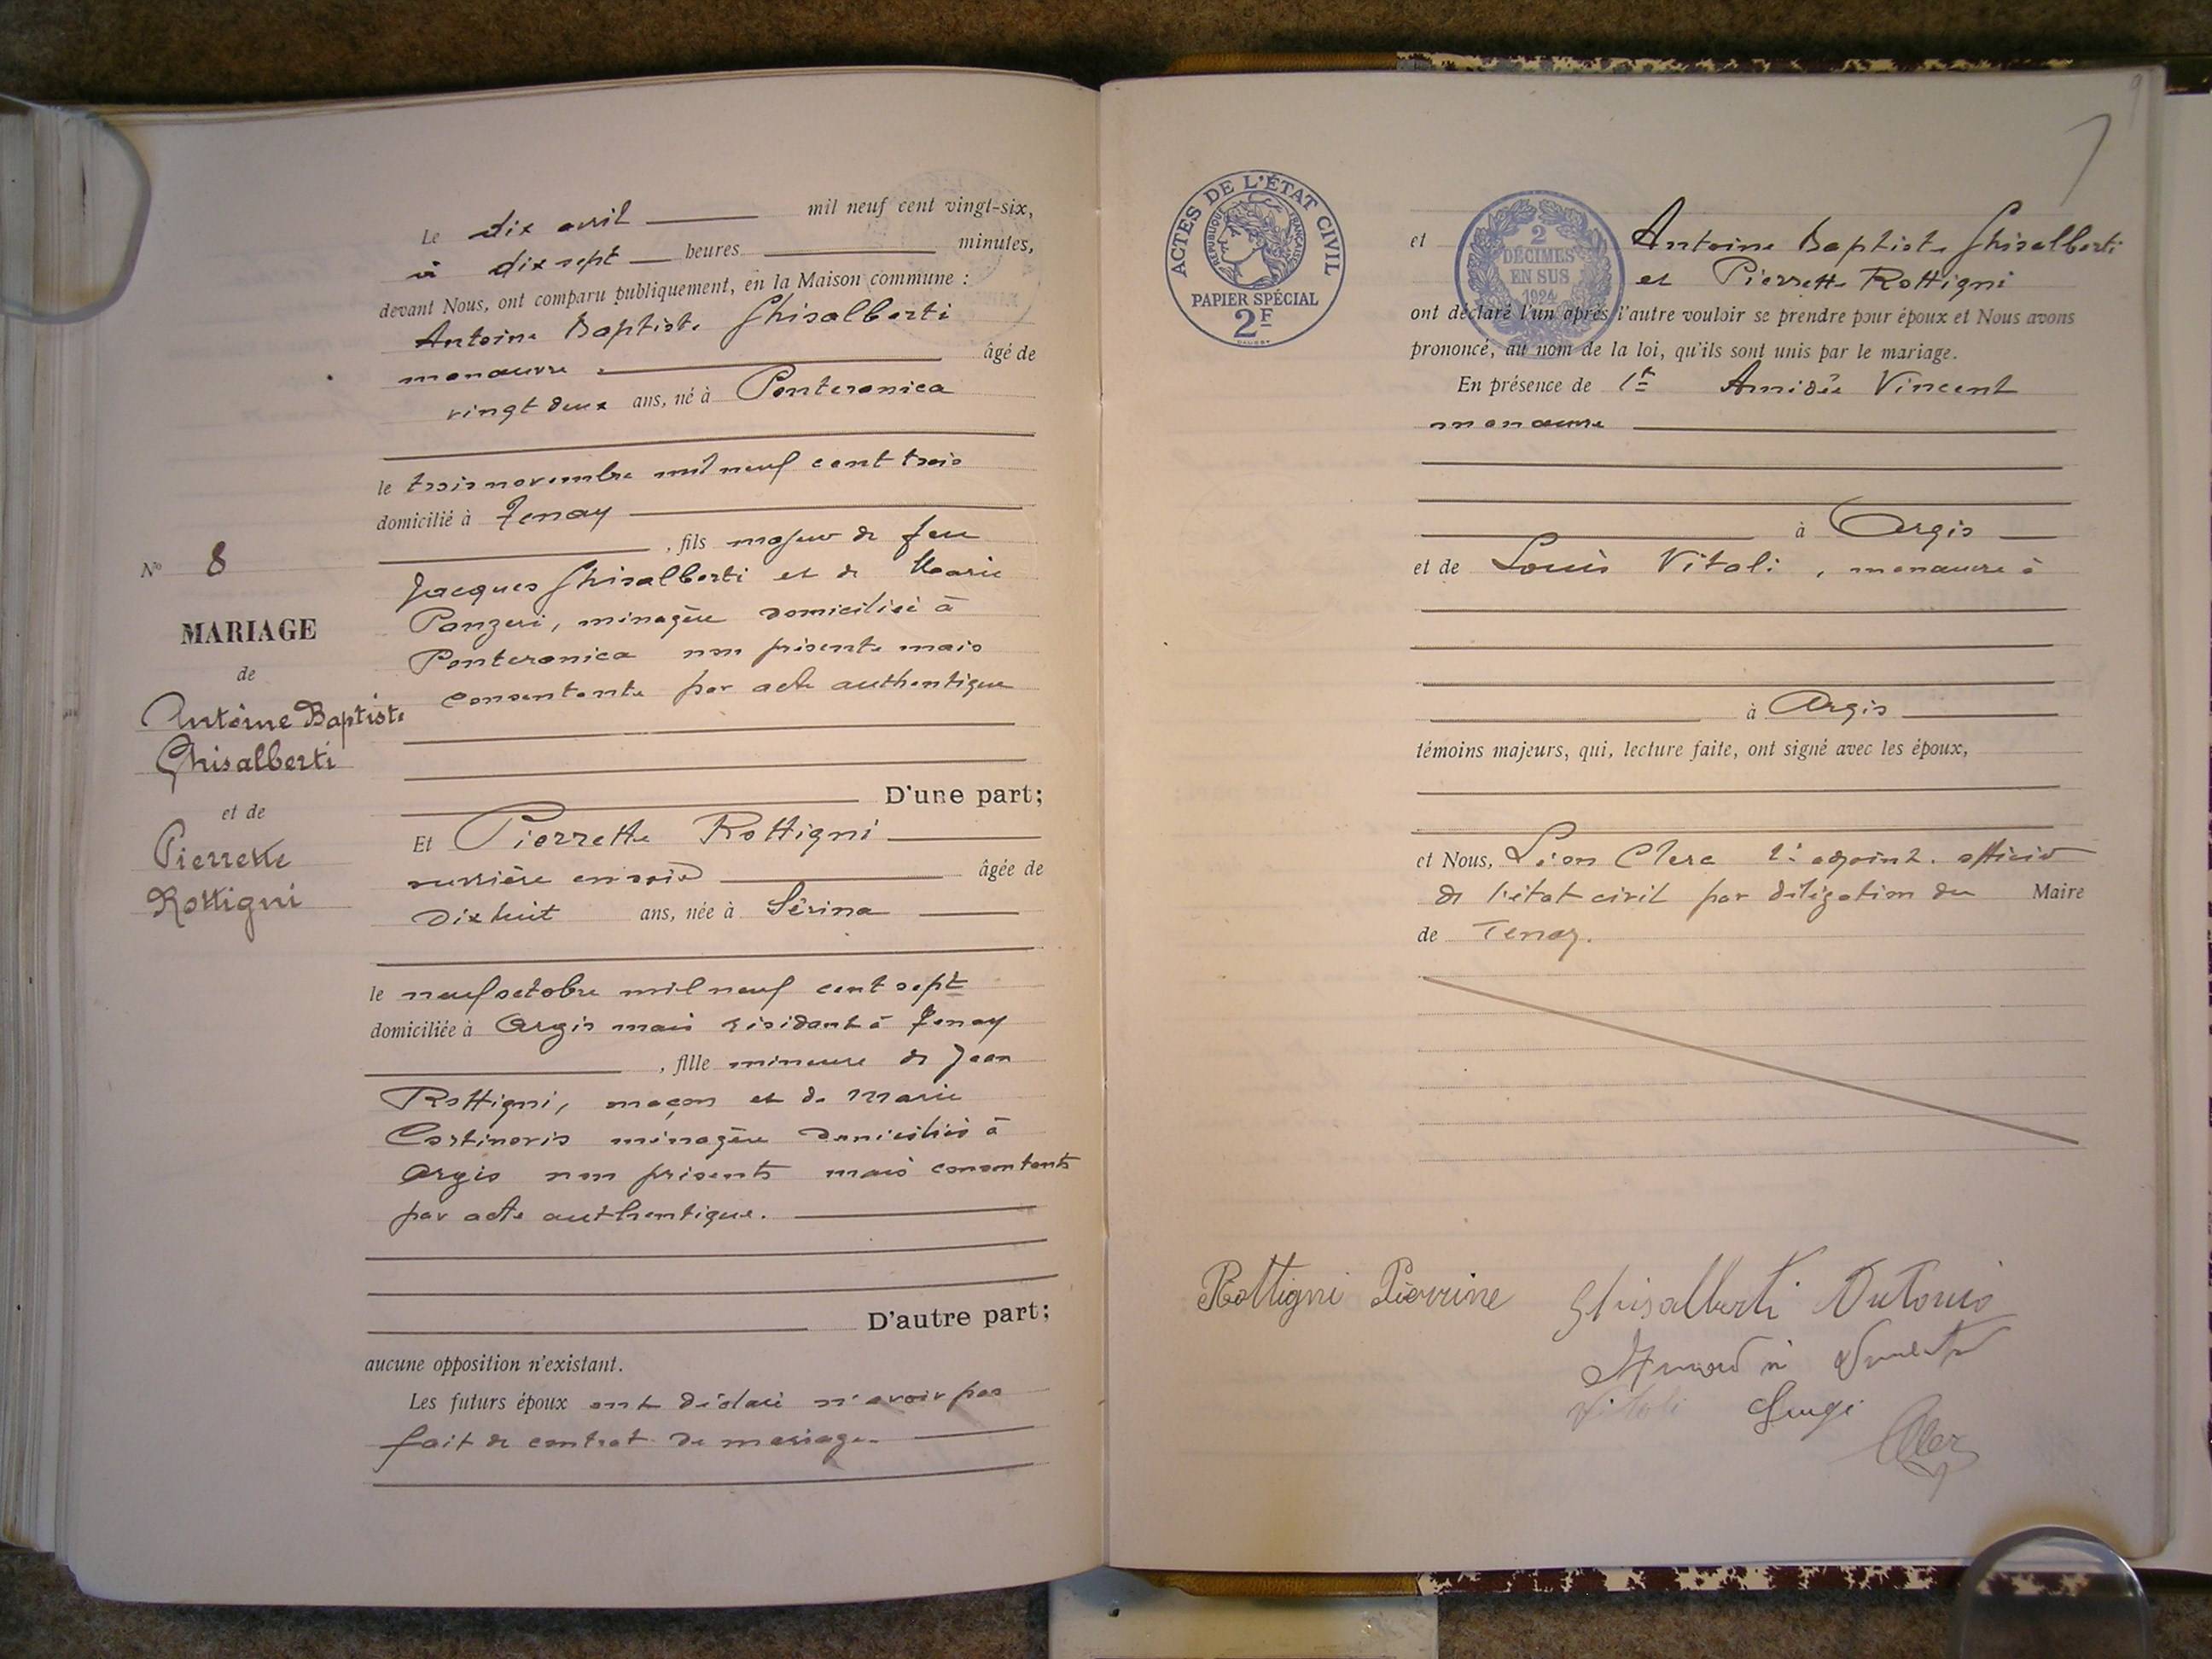 Le dix avril mil neuf cent vingt-six,
à dix sept heures minutes,
devant Nous, ont comparu publiquement, en la Maison commune :
Antoine Baptiste Ghisalberti
manœuvre âgé de
vingt deux ans, né à Ponteranica
le trois novembre mil neuf cent trois
domicilié à Tenay
, fils majeur de feu
Jacques Ghisalberti et de Marie
Panzeri, ménagère domiciliée à
Ponteranica non présente mais
consentante par acte authentique
D'une part;
Et Pierrette Rottigni
ouvrière en soie âgée de
Dix huit ans, née à Sérina
le neuf octobre mil neuf cent sept
domiciliée à Argis mais résidant à Tenay
, fille mineure de Jean
Rottigni, maçon et de Marie
Cortinovis ménagère domiciliés à
Argis non présents mais consentants
par acte authentique.
D'autre part;
aucune opposition n'existant.
Les futurs époux ont déclaré n'avoir pas
fait de contrat de mariage.
N° 8
MARIAGE
de
Antoine Baptiste
Ghisalberti
et de
Pierrette
Rottigni
ACTES DE L'ÉTAT CIVIL
RÉPUBLIQUE FRANÇAISE
PAPIER SPÉCIAL
2F
2
DÉCIMES
EN SUS
1924
et Antoine Baptiste Ghisalberti
et Pierrette Rottigni
ont déclaré l'un après l'autre vouloir se prendre pour époux et Nous avons
prononcé, au nom de la loi, qu'ils sont unis par le mariage.
En présence de Amidée Vincent
manœuvre
à Argis
et de Louis Vitali, manœuvre à
à Argis
témoins majeurs, qui, lecture faite, ont signé avec les époux,
et Nous, Léon Clerc adjoint. officier
de l'état civil par délégation du Maire
de Tenay.
Rottigni Pierrine Ghisalberti Antonio
Vitali Luigi
Clerc